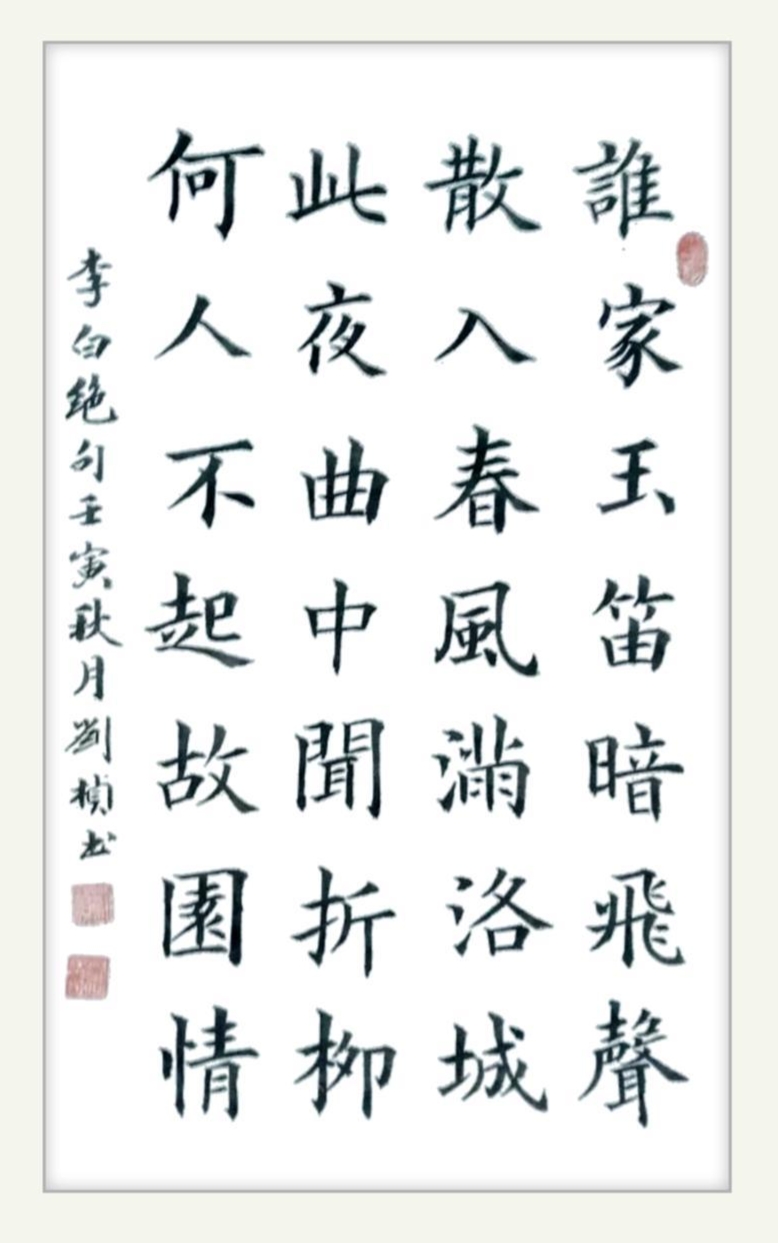 誰家玉笛暗飛聲
散入春風滿洛城
此夜曲中聞折柳
何人不起故園情
李白絶句壬寅秋月劉楨书